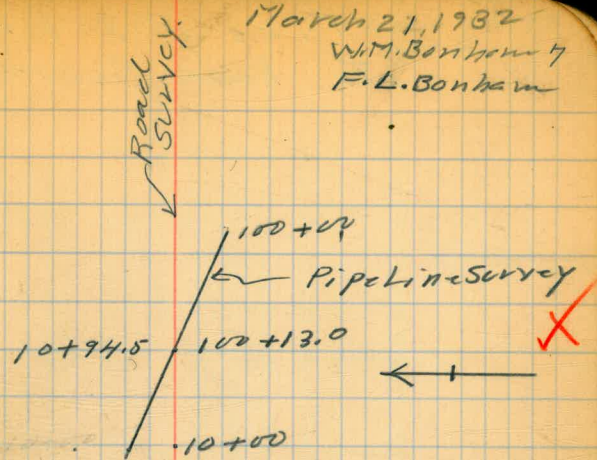 March 21, 1932
W.M. Bonham
F.L. Bonham
Road
Survey
100+00
Pipe Line Survey
10+94.5
100+13.0
10+00